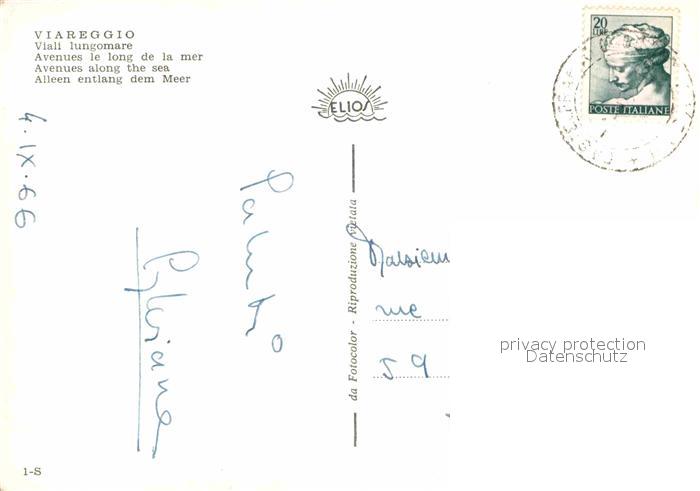 VIAREGGIO
Viali lungomare
Avenues le long de la mer
Avenues along the sea
Alleen entlang dem Meer
ELIOS
20
LIRE
POSTE ITALIANE
4.IX.66
da Fotocolor - Riproduzione vietata
59
privacy protection
Datenschutz
1-S